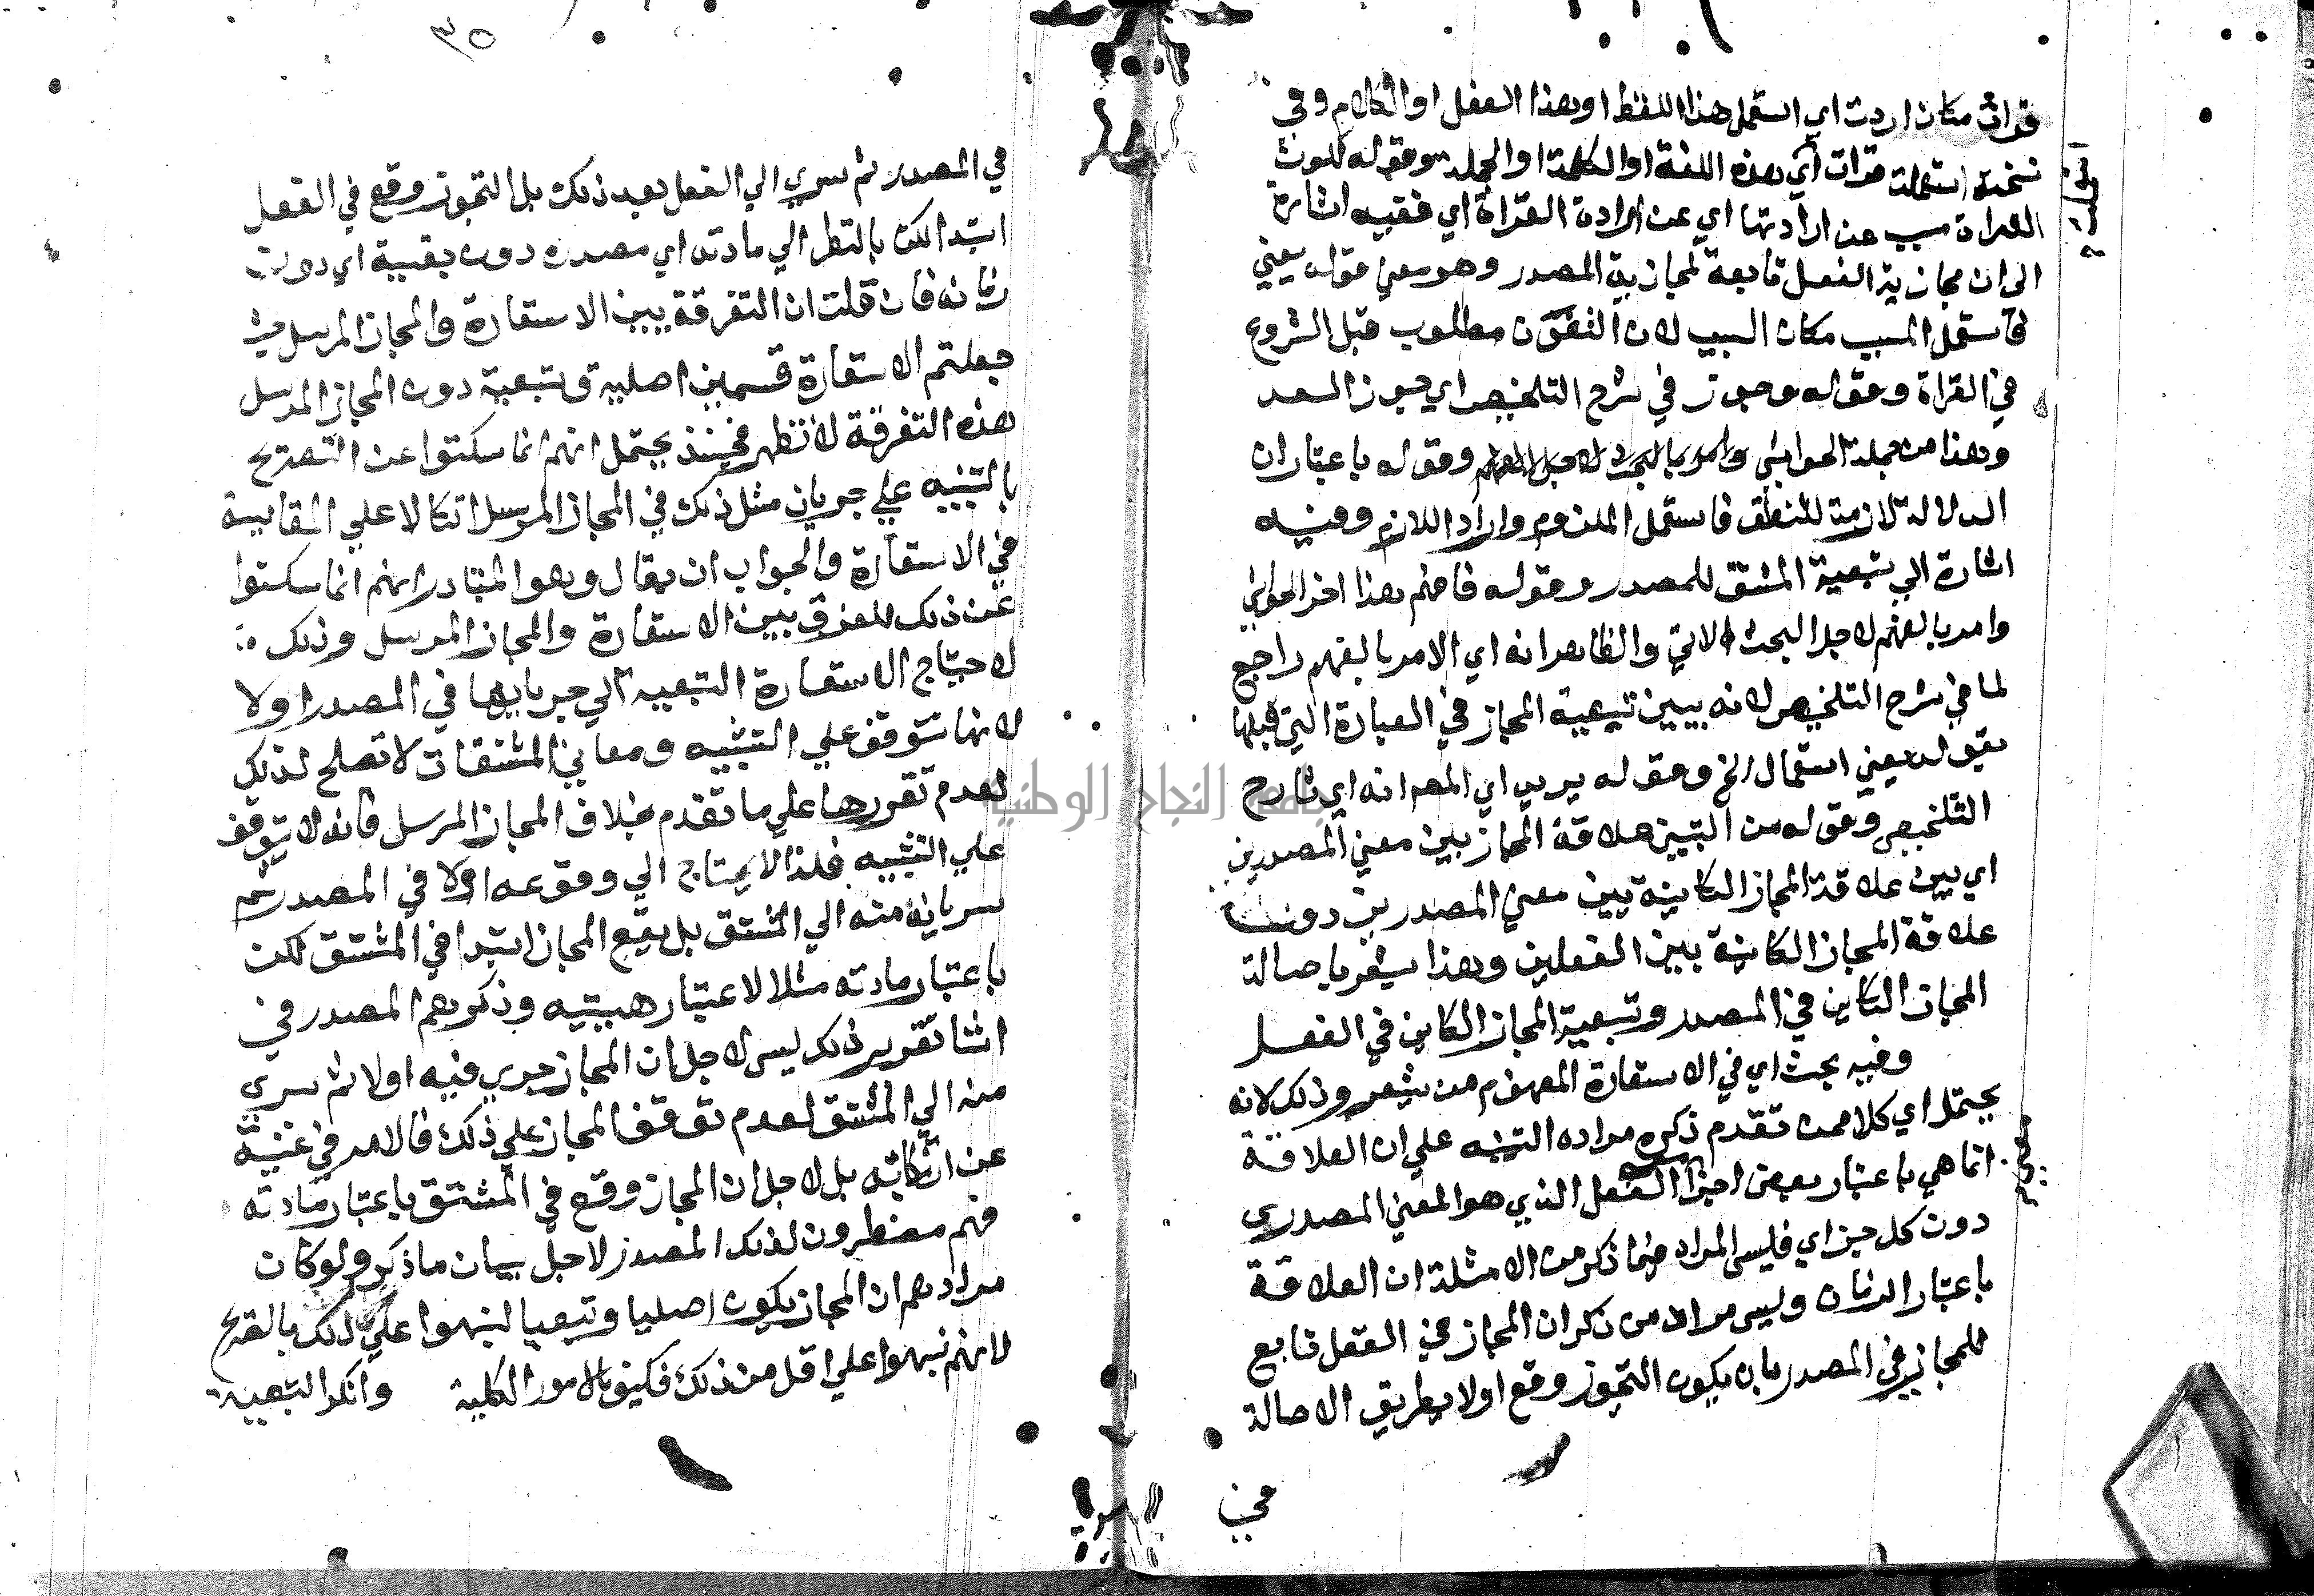 قرات مكان اردت اي استعمل هذا اللفظ او هذا الفعل او الكلام وفي
نسخة استعملت قرات اي هذه اللغة او الكلمة او الجملة وقوله لكون
القراة مسبب عن ارادتها اي عن ارادة القراة اي ففيه اشارة
الى ان مجازية الفعل تابعة لمجازية المصدر وهو معنى قوله يعني
فاستعمل المسبب مكان السبب لان التعوذ مطلوب قبل الشروع
في القراة وقوله وجوز في شرح التلخيص اي جوز السعد
وهذا من جملة الجواب وقوله باعتبار ان
الدلالة لازمة للنطق فاستعمل الملزوم واراد اللازم وفيه
اشارة الي تبعية المشتق للمصدر وقوله فافهم هذا اخر الحواشي
وامر بالفهم لاجل البحث الاتي والظاهر انه اي الامر بالفهم راجع
لما في شرح التلخيص لانه يبين تبعية المجاز في العبارة التي قبلها
بقوله يعني استعمال الخ وقوله يريد اي المص انه اي شارح
التلخيص وقوله من التبيين علاقة المجاز بين معني المصدرين
اي بين علاقة المجاز الكاينة بين معني المصدرين دون
علاقة المجاز الكاينة بين الفعلين وهذا يشعر باصالة
المجاز الكاين في المصدر وتبعية المجاز الكاين في الفعل
وفيه بحث اي في الاستعارة المفهوم من يشعر وذلك لانه
يحتمل اي كلام من تقدم ذكره مراده التنبيه علي ان العلاقة
انما هي باعتبار بعض اجزا الفعل الذي هو المعني المصدري
دون كل جزء اي فليس المراد فيما ذكر من الامثلة ان العلاقة
باعتبار الزمان وليس مراد من ذكر ان المجاز في الفعل تابع
للمجاز في المصدر بان يكون التجوز وقع اولا بطريق الاصالة
في
٣٥
في المصدر ثم سري الي الفعل بعد ذلك بل التجوز وقع في الفعل
ابتدا لكن بالنظر الي مادته اي مصدره دون بقيته اي دون
زمانه فان قلت ان التفرقة بين الاستعارة والمجاز المرسل حيث
جعلتم الاستعارة قسمين اصلية وتبعية دون المجاز المرسل
هذه التفرقة لا تظهر فحينئذ يحتمل انهم انما سكتوا عن التصريح
بالتنبيه علي جريان مثل ذلك في المجاز المرسل اتكالا علي المقايسة
في الاستعارة والجواب ان يقال وهو المتبادر انهم انما سكتوا
عن ذلك للفرق بين الاستعارة والمجاز المرسل وذلك
لاحتياج الاستعارة التبعية الي جريانها في المصدر اولا
لانها تتوقف علي التشبيه ومعاني المشتقات لا تصلح لذلك
لعدم تقررها علي ما تقدم بخلاف المجاز المرسل فانه لا يتوقف
علي التشبيه فلذا لا يحتاج الي وقوعه اولا في المصدر ثم
سريانه منه الي المشتق بل يقع المجاز ابتدا في المشتق لكن
باعتبار مادته مثلا لا اعتبار هييته وذكرهم المصدر في
اثنا تقرير ذلك ليس لاجل ان المجاز جري فيه اولا ثم سري
منه الي المشتق لعدم توقف المجاز علي ذلك فالامر في غنية
عن بل لاجل ان المجاز وقع في المشتق باعتبار مادته
فهم مضطرون لذلك المصدر لاجل بيان ما ذكر ولو كان
مرادهم ان المجاز يكون اصليا وتبعيا لنبهوا علي ذلك بالتصريح
لانهم نبهوا علي اقل من ذلك فكيف بالامور الكلية وانكر التبعية
جامعة النجاح الوطنية